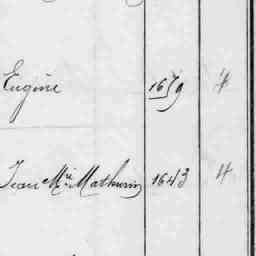 Eugène 1679 4
Jean Mie Mathurin 1643 4